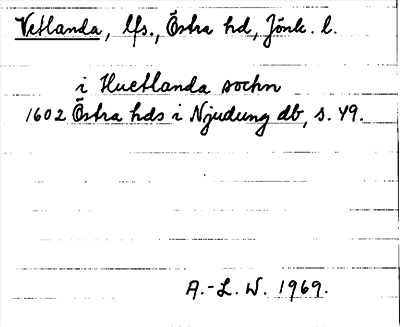 Vetlanda, lfs., Östra hd, Jönk. l.
i Huetlanda sochn
1602 Östra hds i Njudung db, s. 49.
A.-L. W. 1969.